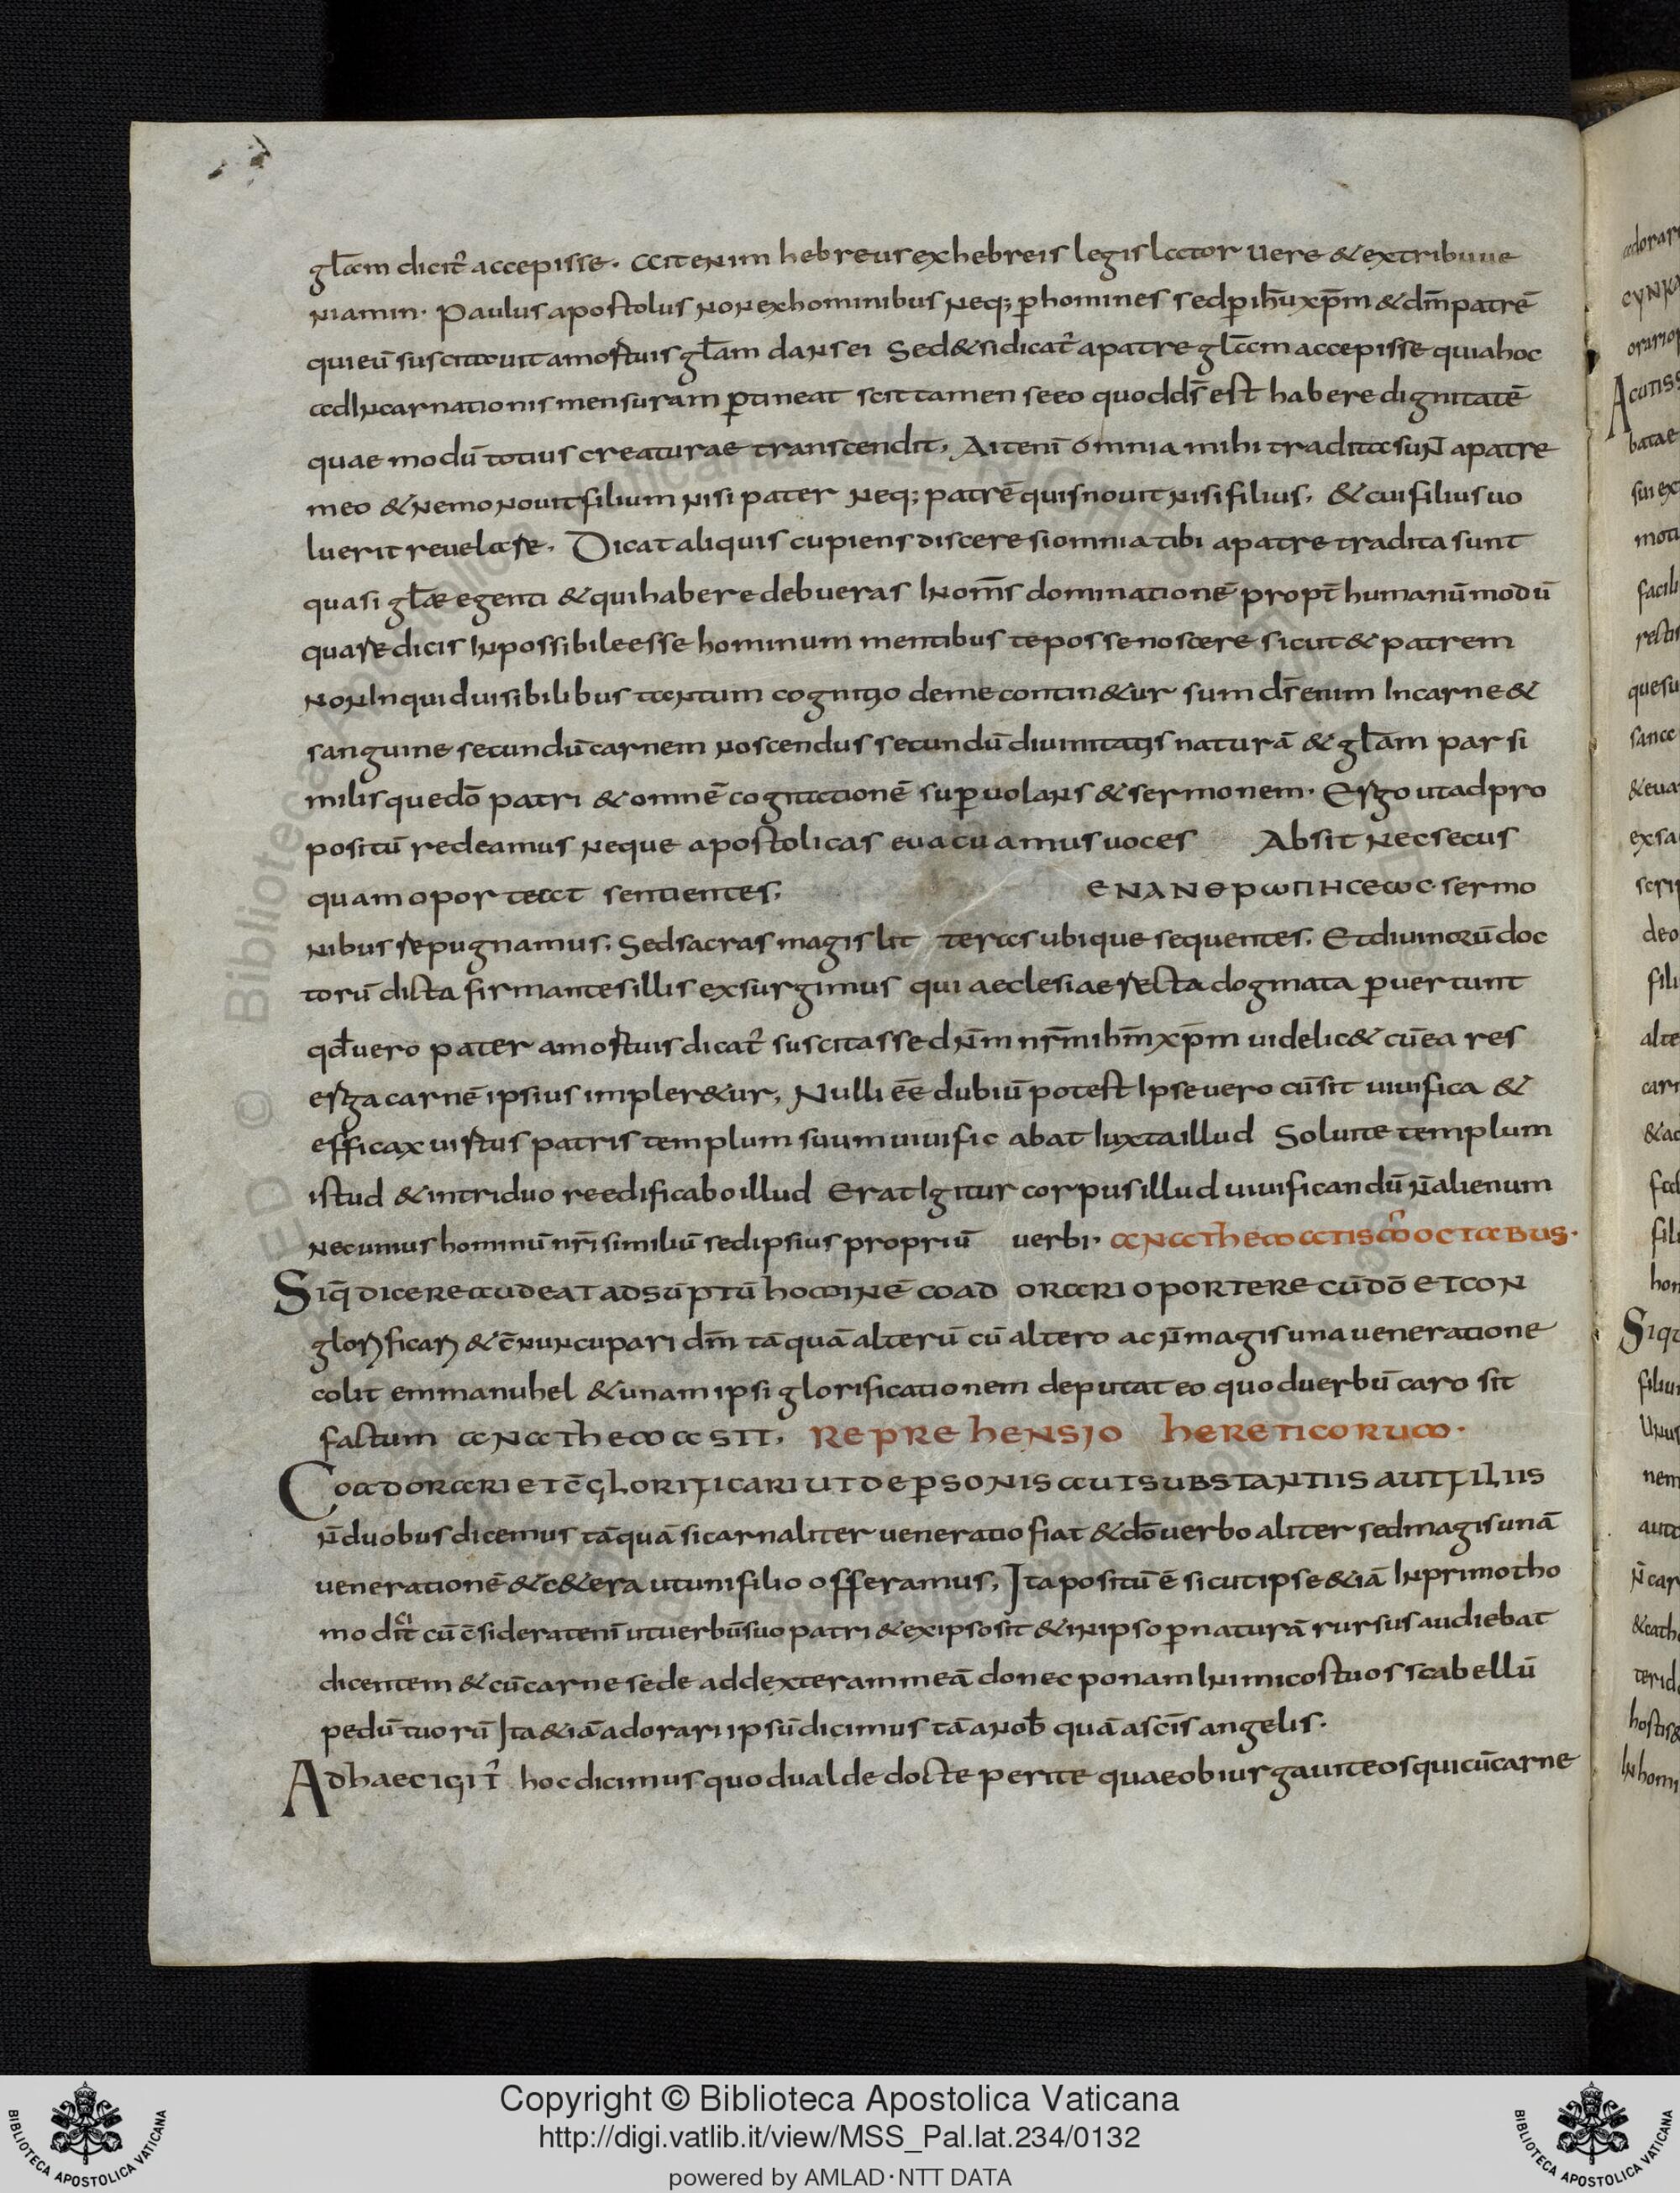 gl̅am dicit᷑ accepisse. Ait enim hebreus ex hebreis legis lator vere & extribuue
niamin. Paulus apostolus non ex hominibus neq; p̱ homines sed p̱ ih̅u xp̅m & dm̅ patrē
qui eū suscitavit a mortuis gl̅am dans ei Sed & si dicat᷑ a patre gl̅am accepisse quia hoc
ad Incarnationis mensuram p̱tineat scit tamen se eo quod ds̅ est habere dignitatē
quae modū totius creaturae transcendit, Ait enī omnia mihi tradita sunt a patre
meo & nemo novit filium nisi pater neq; patrē quis novit nisi filius, & cui filius uo
luerit reuelare, Dicat aliquis cupiens discere si omnia tibi a patre tradita sunt
quasi gl̅ae egenti & qui habere debueras In om̅s dominationē propt̅ humanū modū
quare dicis Inpossibile esse hominum mentibus te posse noscere sicut & patrem
non In quid uisibilibus tantum cognitio de me contin&ur sum ds̅ enim In carne &
sanguine secundū carnem noscendus secundū diuinitatis naturā & gl̅am par si
milisque dō patri & omnē cogitationē sup̱uolans & sermonem. Ergo ut ad pro
positū redeamus neque apostolicas euacuamus uoces Absit nec secus
quam oporteat sentientes, ενανθρωπησεωσ sermo
nibus repugnamus, Sed sacras magis lit teras ubique sequentes, Et diuinorū doc
torū dicta firmantes illis exsurgimus qui aeclesiae recta dogmata p̱uertunt
qđ uero pater a mortuis dicat᷑ suscitasse dn̅m nr̅m ih̅m xp̅m uidelic& cū ea res
erga carnē ipsius impler&ur, Nulli ēe dubiū potest Ipse uero cū sit uiuifica &
efficax uirtus patris templum suum uiuific abat Iuxta illud Soluite templum
istud & in triduo reedificabo illud Erat Igitur corpus illud uiuificandū n̅ alienum
nec unius hominū nr̅i similiū sed ipsius propriū uerbi. anathematismꝰ octabus.
Siq̅ dicere audeat adsūptū hominē coad orari oportere cū dō et con
glorificari & c̅nuncupari dm̅ tāquā alterū cū altero ac n̅ magis una ueneratione
colit emmanuhel & unam ipsi glorificationem deputat eo quod uerbū caro sit
factum anathema sit, Reprehensio hereticorum.
Coadorari et c̅glorificari ut de p̱sonis aut substantiis aut filiis
n̅ duobus dicemus tāquā si carnaliter ueneratio fiat & dō uerbo aliter sed magis unā
uenerationē & c&era ut uni filio offeramus, Ita positū ē sicut ipse &iā In primo tho
mo dicit cū c̅siderat enī ut uerbū suo patri & ex ipso sit & in ipso p̱ naturā rursus audiebat
dicentem & cū carne sede ad dexteram meā donec ponam Inimicos tuos scabellū
pedū tuorū Ita &iā adorari ipsū dicimus tā a nob̅ quā a sc̅is angelis.
Ad haec igit᷑ hoc dicimus quod ualde docte perite quae obiurgauit eos qui cū carne
Copyright © Biblioteca Apostolica Vaticana
http://digi.vatlib.it/view/MSS_Pal.lat.234/0132
powered by AMLAD·NTT DATA
BIBLIOTECA APOSTOLICA VATICANA
BIBLIOTECA APOSTOLICA VATICANA